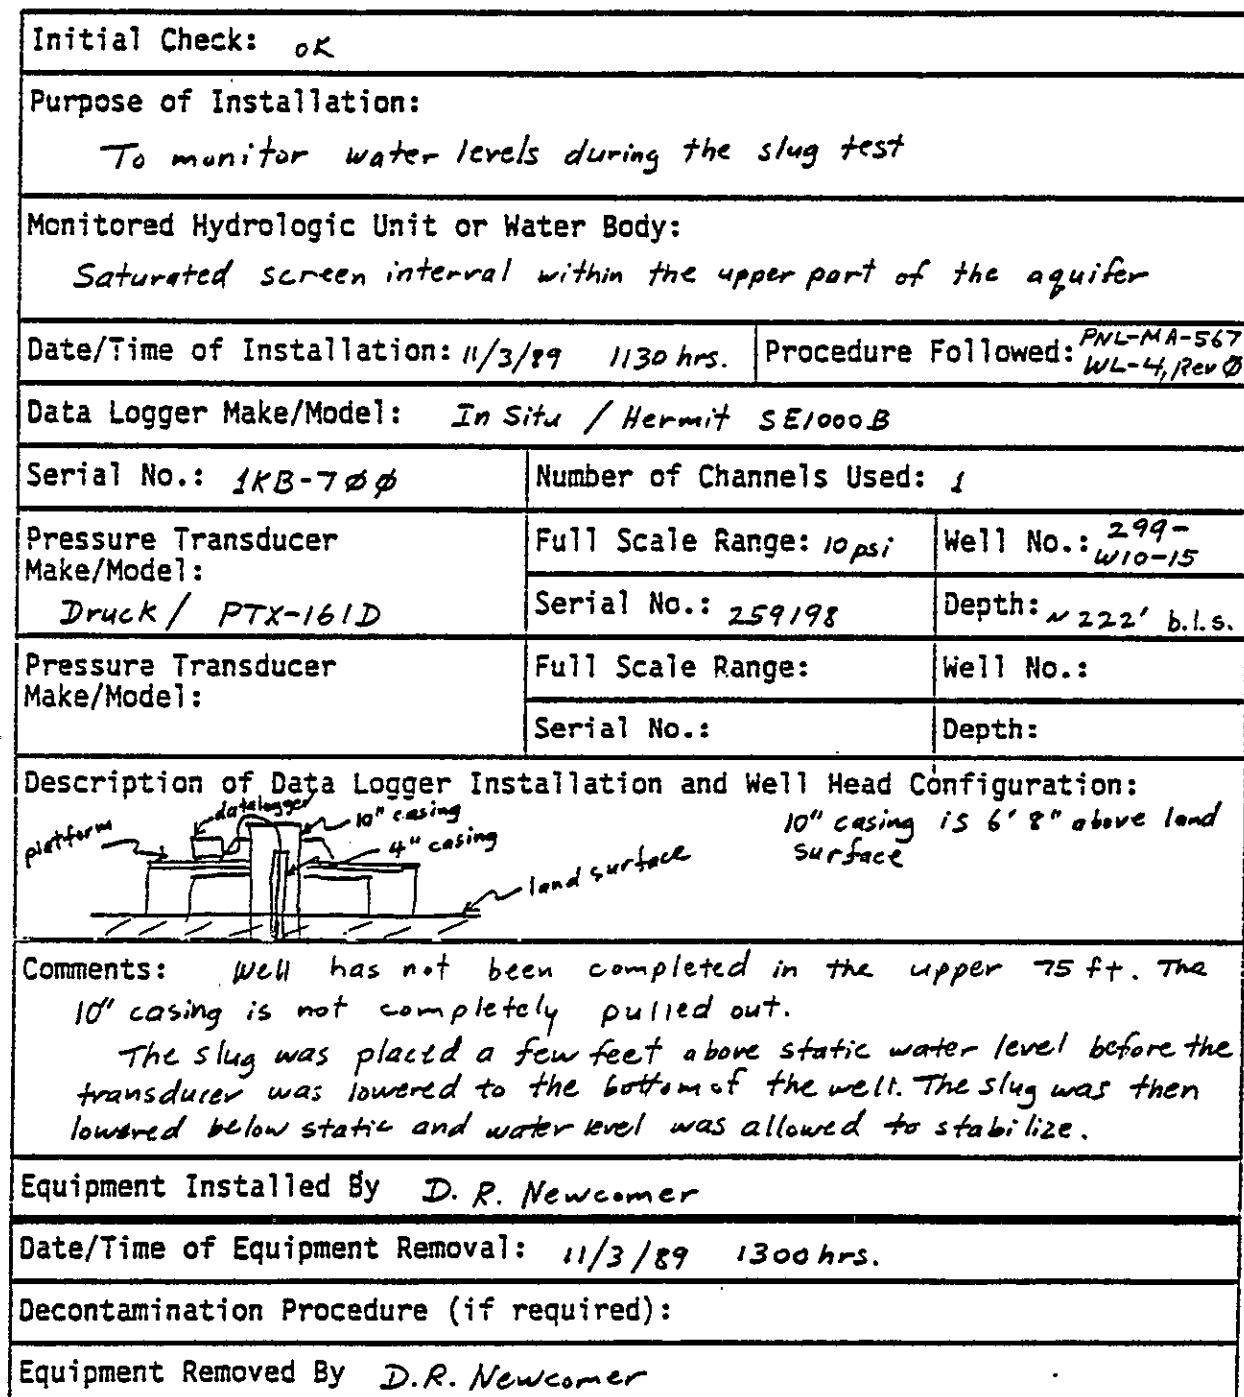 Initial Check: OK
Purpose of Installation:
To monitor water levels during the slug test
Monitored Hydrologic Unit or Water Body:
Saturated screen interval within the upper part of the aquifer
Date/Time of Installation: 11/3/89 1130 hrs.
Procedure Followed: PNL-MA-567
WL-4, Rev Ø
Data Logger Make/Model: In Situ / Hermit SE1000B
Serial No.: 1KB-7ØØ
Number of Channels Used: 1
Pressure Transducer
Make/Model:
Druck / PTX-161D
Full Scale Range: 10 psi
Well No.: 299-
W10-15
Serial No.: 259198
Depth: ~ 222' b.l.s.
Pressure Transducer
Make/Model:
Full Scale Range:
Well No.:
Serial No.:
Depth:
Description of Data Logger Installation and Well Head Configuration:
platform
datalogger
10" casing
4" casing
land surface
10" casing is 6' 8" above land
surface
Comments: Well has not been completed in the upper 75 ft. The
10" casing is not completely pulled out.
The slug was placed a few feet above static water level before the
transducer was lowered to the bottom of the well. The slug was then
lowered below static and water level was allowed to stabilize.
Equipment Installed By D. R. Newcomer
Date/Time of Equipment Removal: 11/3/89 1300 hrs.
Decontamination Procedure (if required):
Equipment Removed By D.R. Newcomer